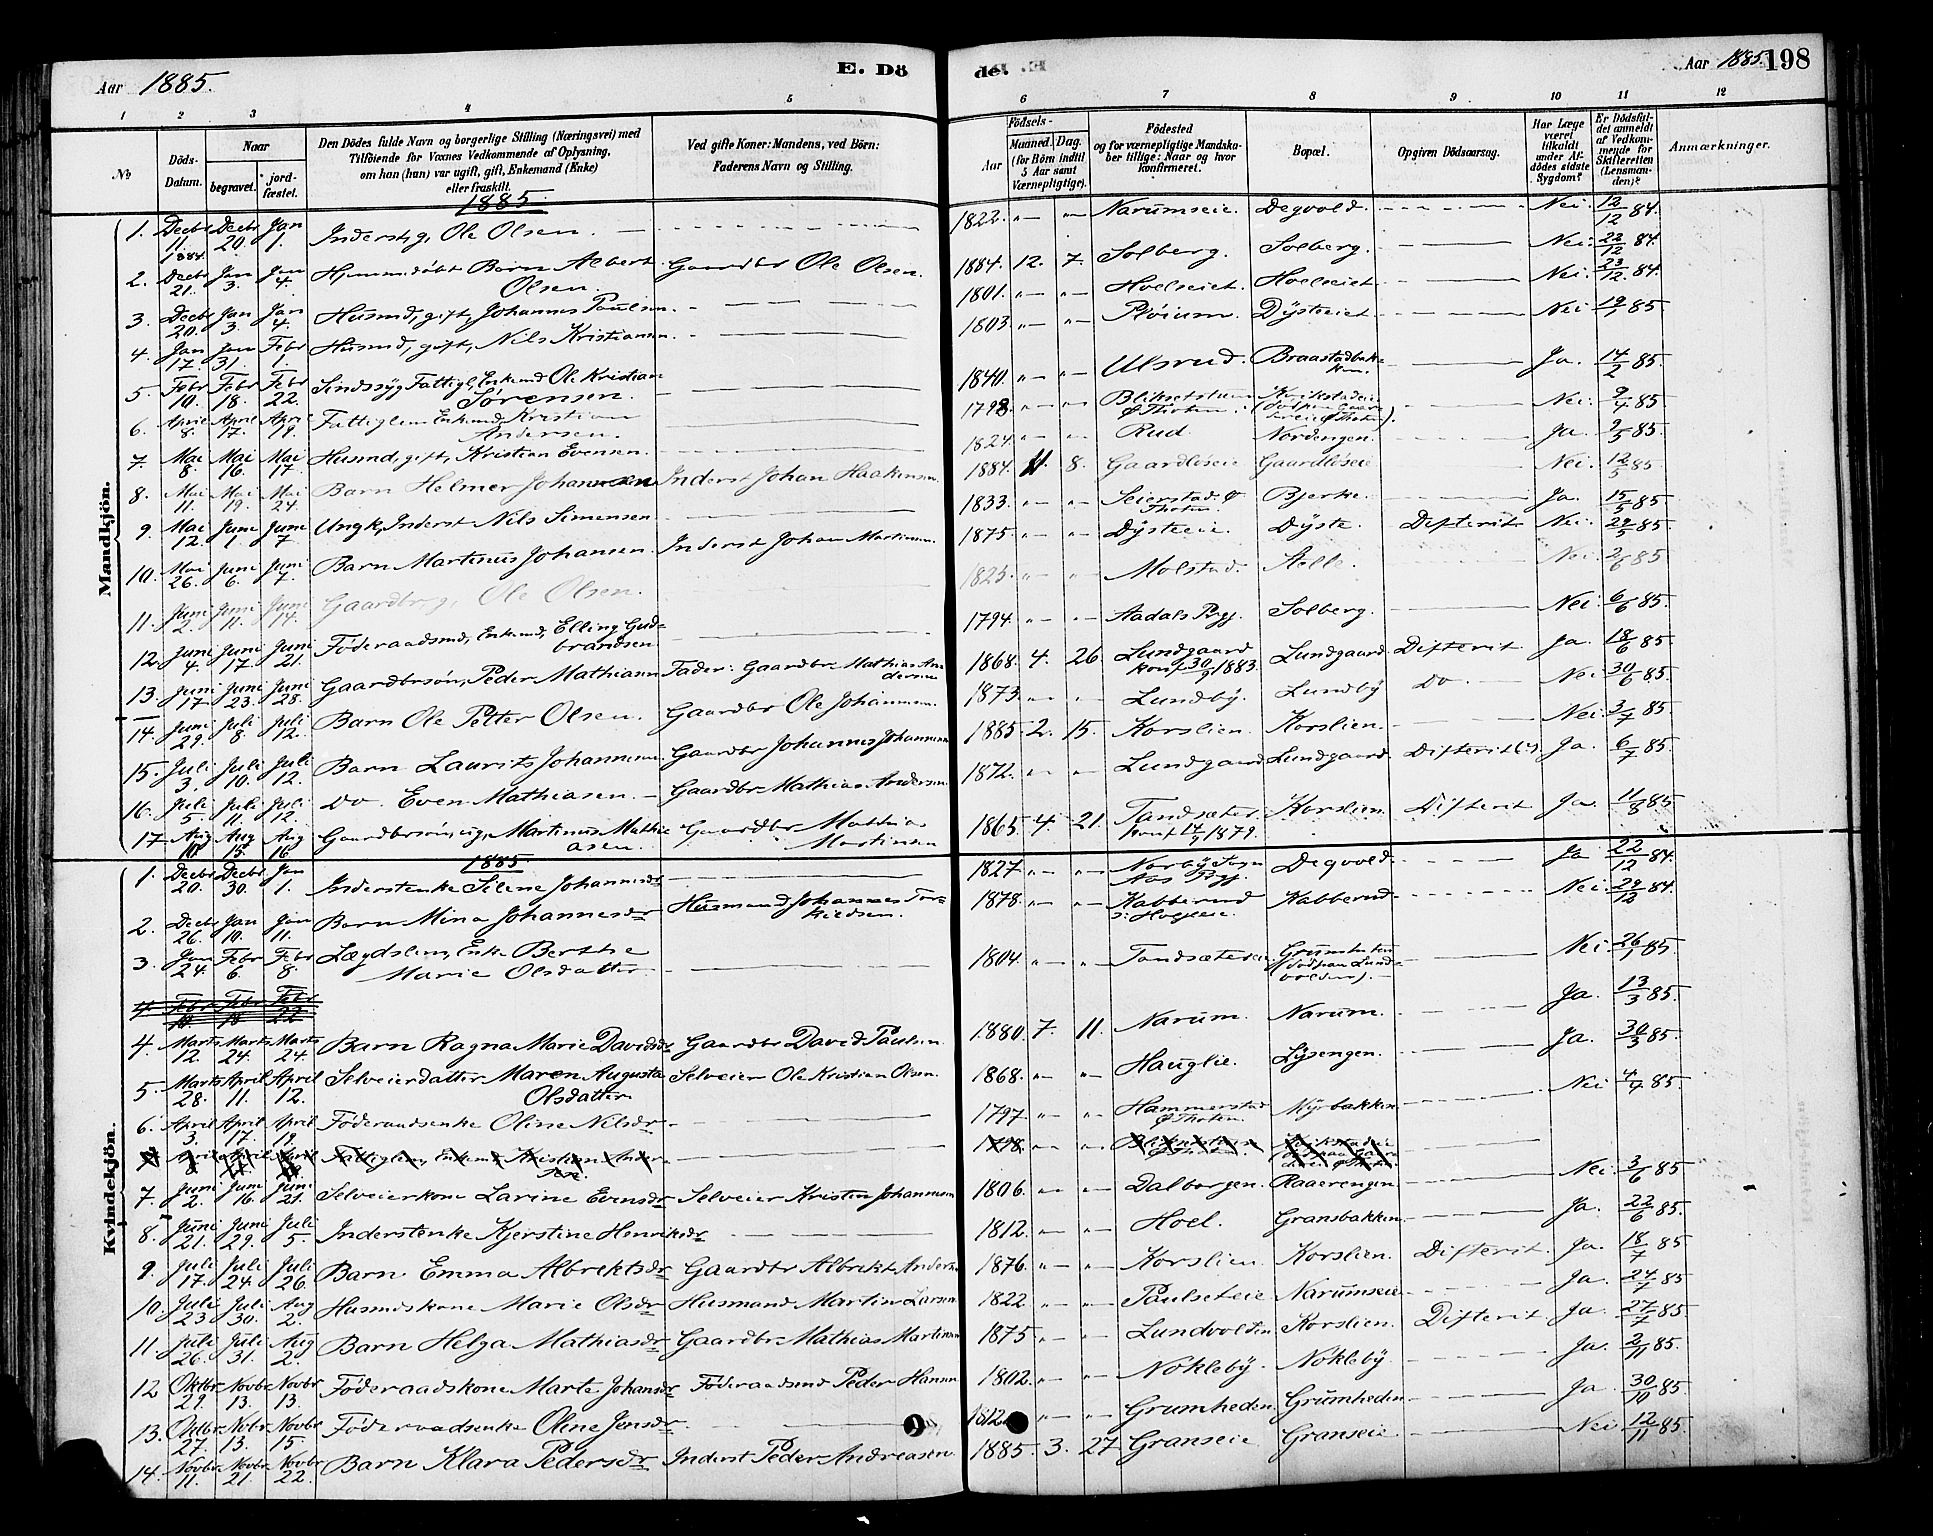 Aar 1885.
E. Dö
de.
Aar 1885. 198
1 2 3 4 5 6 7 8 9 10 11 12
No
Döds-Datum.
Naar
begravet.
jord-fæstet.
Den Dödes fulde Navn og borgerlige Stilling (Næringsvei) med
Tilföiende for Voxnes Vedkommende af Oplysning,
om han (hun) var ugift, gift, Enkemand (Enke)
eller fraskilt.
Ved gifte Koner: Mandens, ved Börn:
Faderens Navn og Stilling.
Aar
Födsels-
Maaned. Dag.
(for Börn indtil
5 Aar samt
Værnepligtige).
Födested
og for værnepligtige Mandska-
ber tillige: Naar og hvor
konfirmeret.
Bopæl.
Opgiven Dödsaarsag.
Har Læge
været
tilkaldt
under Af-
dödes sidste
Sygdom?
Er Dödsfal-
det anmeldt
af Vedkom-
mende for
Skifteretten
(Lensman-
den)?
Anmærkninger.
Mandkjön.
1885.
1. Decbr 11. 1884. Decbr 20. Jan 1. Inderst, g, Ole Olsen. 1822. Narumseie. Degvold. Nei. 12/12 84.
2. Decbr 21. Jan 3. Jan 4. Hjemmedöbt Barn Albert Olsen. Gaardbr Ole Olsen. 1884. 12. 7. Solberg. Solberg. Nei. 22/12 84.
3. Decbr 20. Jan 3. Jan 4. Husmd, gift, Johannes Paulsen. 1801. Hoelseiet. Hoelseiet. Nei. 23/12 84.
4. Jan 17. Jan 31. Febr 1. Husmd, gift, Nils Kristiansen. 1803. Pløium. Dÿsteeiet. Nei. 19/1 85
5. Febr 10. Febr 18. Febr 22. Sindssyg Fattigl, Enkemd Ole Kristian Sørensen. 1840. Ulsrud. Braastadbakken. Ja. 14/2 85.
6. April 8. April 17. April 19. Fattiglem Enkemd Kristian Andersen. 1798. Ø Thoten. Nei. 9/4 85
7. Mai 8. Mai 16. Mai 17. Husmd, gift, Kristian Evensen. 1824. Rud. Nordengen. Ja. 9/5 85.
8. Mai 11. Mai 19. Mai 24. Barn Helmer Johansen Inderst Johan Haakensen. 1884. 11. 8. Gaardløseie Gaardløseie Nei. 12/5 85.
9. Mai 12. Juni 1. Juni 7. Ungk, Inderst Nils Simensen 1833. Seierstad. Ø Thoten. Bjerke. Ja. 15/5 85
10. Mai 26. Juni 6. Juni 7. Barn Martinus Johansen. Inderst Johan Martinsen. 1875. Dÿsteeie. Dÿste. Difterit Nei. 29/5 85.
11. Juni 2. Juni 11. Juni 14. Gaardbr, g, Ole Olsen. 1825. Molstad. Aelle. Nei. 2/6 85
12. Juni 4. Juni 17. Juni 21. Føderaadsmd, Enkemd, Elling Gudbrandsen 1794. Aadals Prgj. Solberg. Nei. 6/6 85.
13. Juni 17. Juni 23. Juni 28. Gaardbrsøn, Peder Mathiasen Fader: Gaardbr Mathias Andersen 1868. 4. 26. Lundgaard konf 30/9 1883. Lundgaard. Difterit Ja. 18/6 85.
14. Juni 29. Juli 8. Juli 12. Barn Ole Petter Olsen. Gaardbr Ole Johannesen. 1873. Lundby. Lundby Do. Nei 30/6 85.
15. Juli 3. Juli 10. Juli 12. Barn Laurits Johannesen. Gaardbr Johannes Johannesen 1885. 2. 15. Korslien. Korslien. Nei 3/7 85.
16. Juli 5. Juli 11. Juli 12. Do. Even Mathiasen. Gaardbr Mathias Andersen 1872. Lundgaard Lundgaard. Difterit(?) Ja. 6/7 85.
17. Aug 10. Aug 15. Aug 16. Gaardbrsøn, ug, Martinus Mathiasen. Gaardbr Mathias Martinsen 1865. 4. 21. Tandsæter konf 14/9 1879. Korslien. Difterit Ja. 11/8 85
Kvindekjön.
1885.
1. Decbr 20. Decbr 30. Jan 1. Inderstenke Selene Johannesdr 1827. Norby Sogn Næs Prgj. Degvold. Ja 22/12 84.
2. Decbr 26. Jan 10. Jan 11. Barn Mina Johannesdr Husmand Johannes Torkildsen. 1878. Kabberud Kabberud. Nei. 29/12 84.
3. Jan 24. Febr 6. Febr 8. Lægdslem, Enke Berthe Marie Olsdatter. 1804. Tandsætereie Nei 26/1 85.
4. Febr 10 Febr 18 Febr 22
4. Marts 12. Marts 24. Marts 24. Barn Ragna Marie Davidsdr Gaardbr David Paulsen 1880. 7. 11. Narum. Narum. Ja. 13/3 85.
5. Marts 28. April 11. April 12. Selveierdatter Maren Augusta Olsdatter Selveier Ole Kristian Olsen. 1868. Hauglie. Lÿsengen. Ja. 30/3 85.
6. April 3. April 17. April 19. Føderaadsenke Oline Nilsdr. 1797. Hammerstad Ø Thoten Myrbakken Nei 4/4 85
7. April 8. April 17. April 19. Fattiglem, Enkemd Kristian Andersen 1798.
7. Juni 2. Juni 16. Juni 21. Selveierkone Larine Evensdr Selveier Kristen Johannesen 1806. Dalborgen. Raaerengen. Nei. 3/6 85
8. Juni 21. Juni 29. Juli 5. Inderstenke Kjerstine Henriksdr. 1812. Hoel. Gransbakken. Ja. 22/6 85.
9. Juli 17. Juli 24. Juli 26. Barn Emma Albrektsdr Gaardbr Albrekt Andersen 1876. Korslien. Korslien. Difterit. Ja. 18/7 85
10. Juli 23. Juli 30. Aug 2. Husmdskone Marie Olsdr Husmand Martin Larsen 1822. Paulseteie Narumseie Ja. 24/7 85
11. Juli 26. Juli 31. Aug 2. Barn Helga Mathiasdr Gaardbr Mathias Martinsen 1875. Lundvolden Korslien. Difterit Ja. 27/7 85.
12 Oktbr 29. Novbr 13. Novbr 13. Føderaadskone Marte Johansdr Føderaadsmd Peder Hansen 1802. Nökleby. Nökleby. Ja. 2/11 85.
13. Oktbr 27. Novbr 13. Novbr 15. Føderaadsenke Oline Jensdr. 1812. Grumheden. Grumheden. Ja 30/10 85.
14. Novbr 11. Novbr 21. Novbr 22. Barn Klara Pedersdr Inderst Peder Andreasen. 1885. 3. 27 Granseie Granseie Nei 12/11 85.